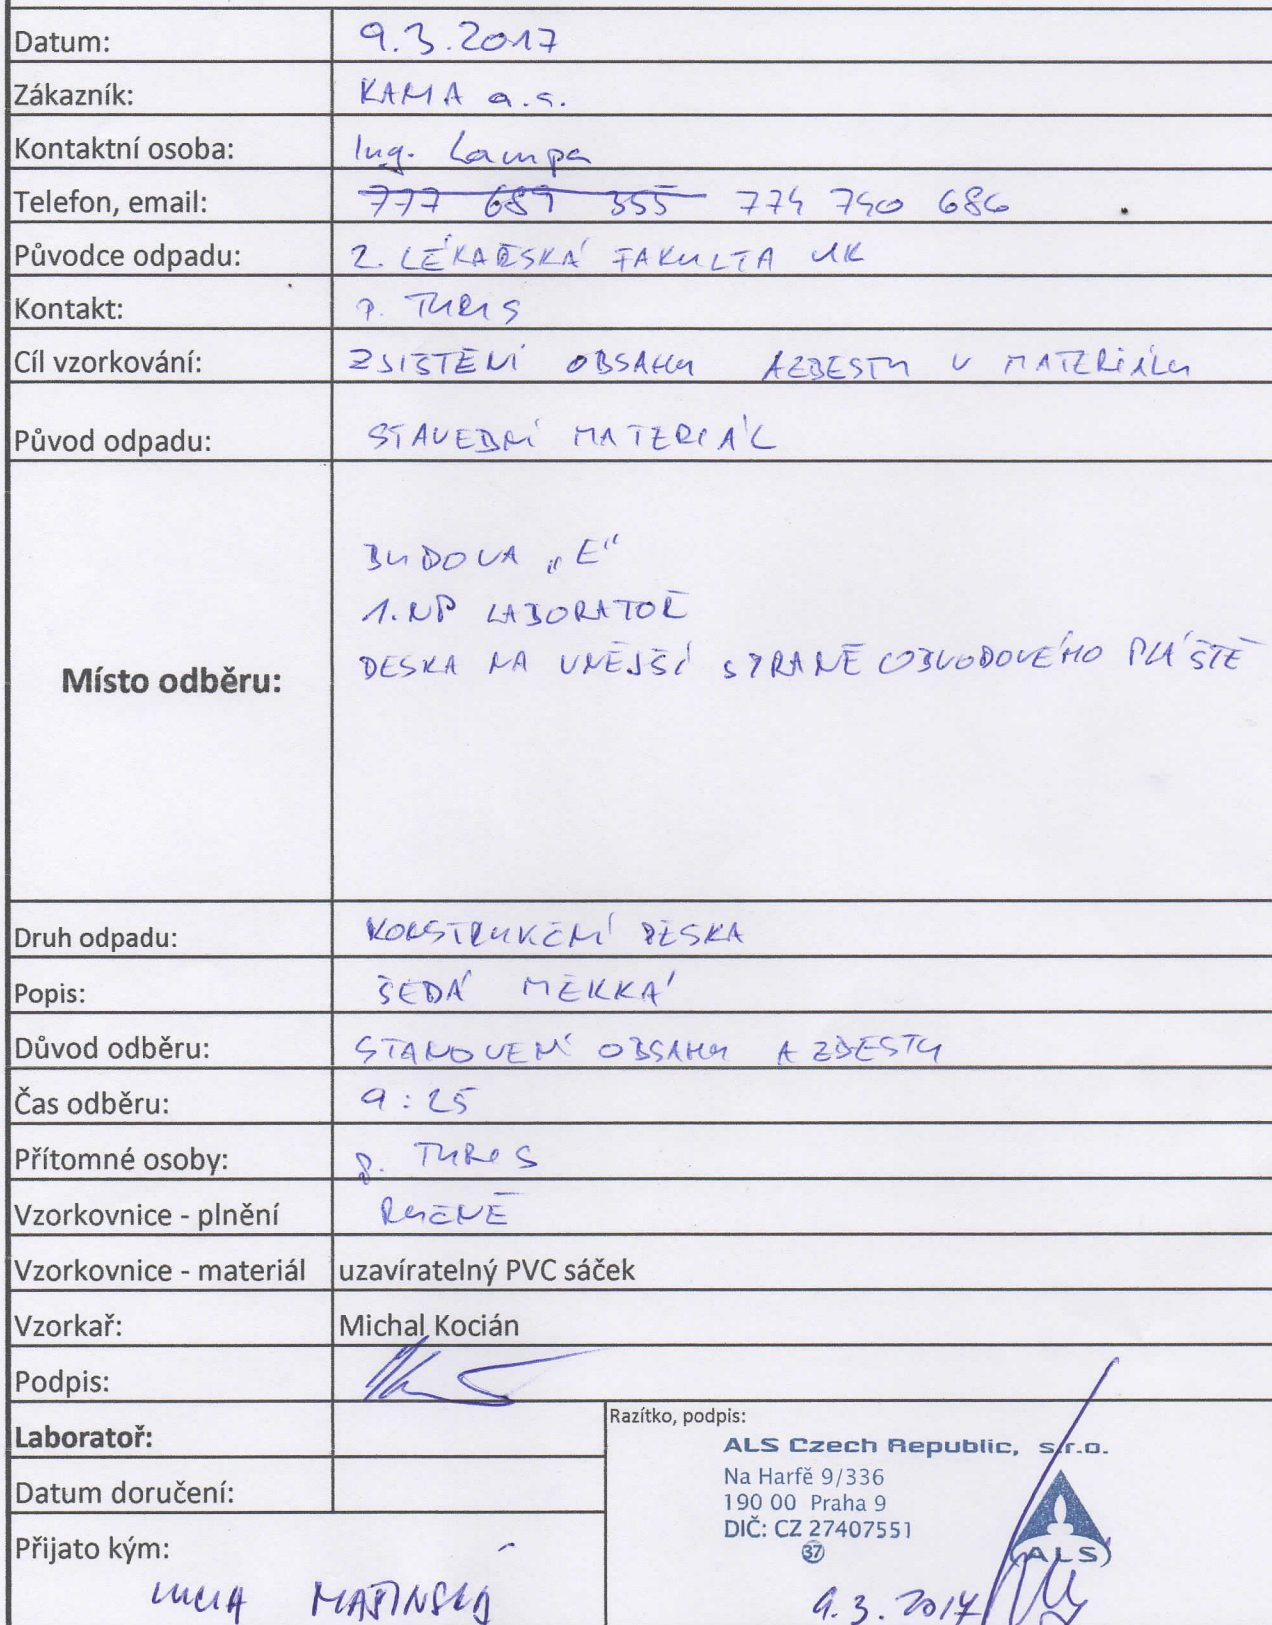 Datum: 9.3.2017
Zákazník: KAMA a.s.
Kontaktní osoba: Ing. Lampa
Telefon, email: 777 689 355 774 740 686
Původce odpadu: 2. LÉKAŘSKÁ FAKULTA UK
Kontakt: p. TURIS
Cíl vzorkování: ZJIŠTĚNÍ OBSAHU AZBESTU V MATERIÁLU
Původ odpadu: STAVEBNÍ MATERIÁL
Místo odběru:
BUDOVA „E“
1.NP LABORATOŘ
DESKA NA VNĚJŠÍ STRANĚ OBVODOVÉHO PLÁŠTĚ
Druh odpadu: KONSTRUKČNÍ DESKA
Popis: ŠEDÁ MĚKKÁ
Důvod odběru: STANOVENÍ OBSAHU AZBESTU
Čas odběru: 9:25
Přítomné osoby: p. TURIS
Vzorkovnice - plnění RUČNĚ
Vzorkovnice - materiál uzavíratelný PVC sáček
Vzorkař: Michal Kocián
Podpis:
Laboratoř:
Datum doručení:
Přijato kým:
LUCIA
Razítko, podpis:
ALS Czech Republic, s.r.o.
Na Harfě 9/336
190 00 Praha 9
DIČ: CZ 27407551
37
ALS
9.3.2017